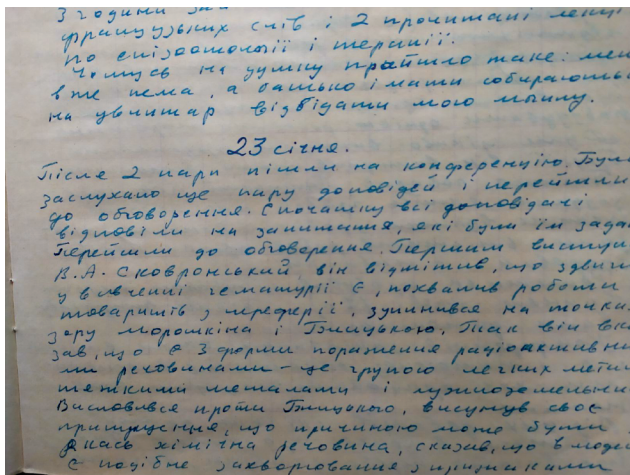 3 години за
французьких слів і 2 прочитані лекц
по епізоотології і терапії.
Чомусь на думку прийшло таке: мен
вже нема, а батько і мати собирають
на цвинтар відвідати мою могилу.
23 січня.
Після 2 пари пішли на конференцію. Було
заслухано ще пару доповідей і перейшли
до обговорення. Спочатку всі доповідачі
відповіли на запитання, які були їм задан
Перейшли до обговорення. Першим виступи
В.А. Сковронський, він відмітив, що здвиги
у вивченні гематурії є, похвалив роботи
товаришів з переферії, зупинився на точках
зору Морошкіна і . Так він вка
зав, що є 3 форми пораження радіоактивни
ми речовинами - це групою легких метал
тяжкими металами і лужноземельни
Висловився проти , висунув своє
припущення, що причиною може бути
якась хімічна речовина, сказав, що в людей
є подібне захворювання з признаками